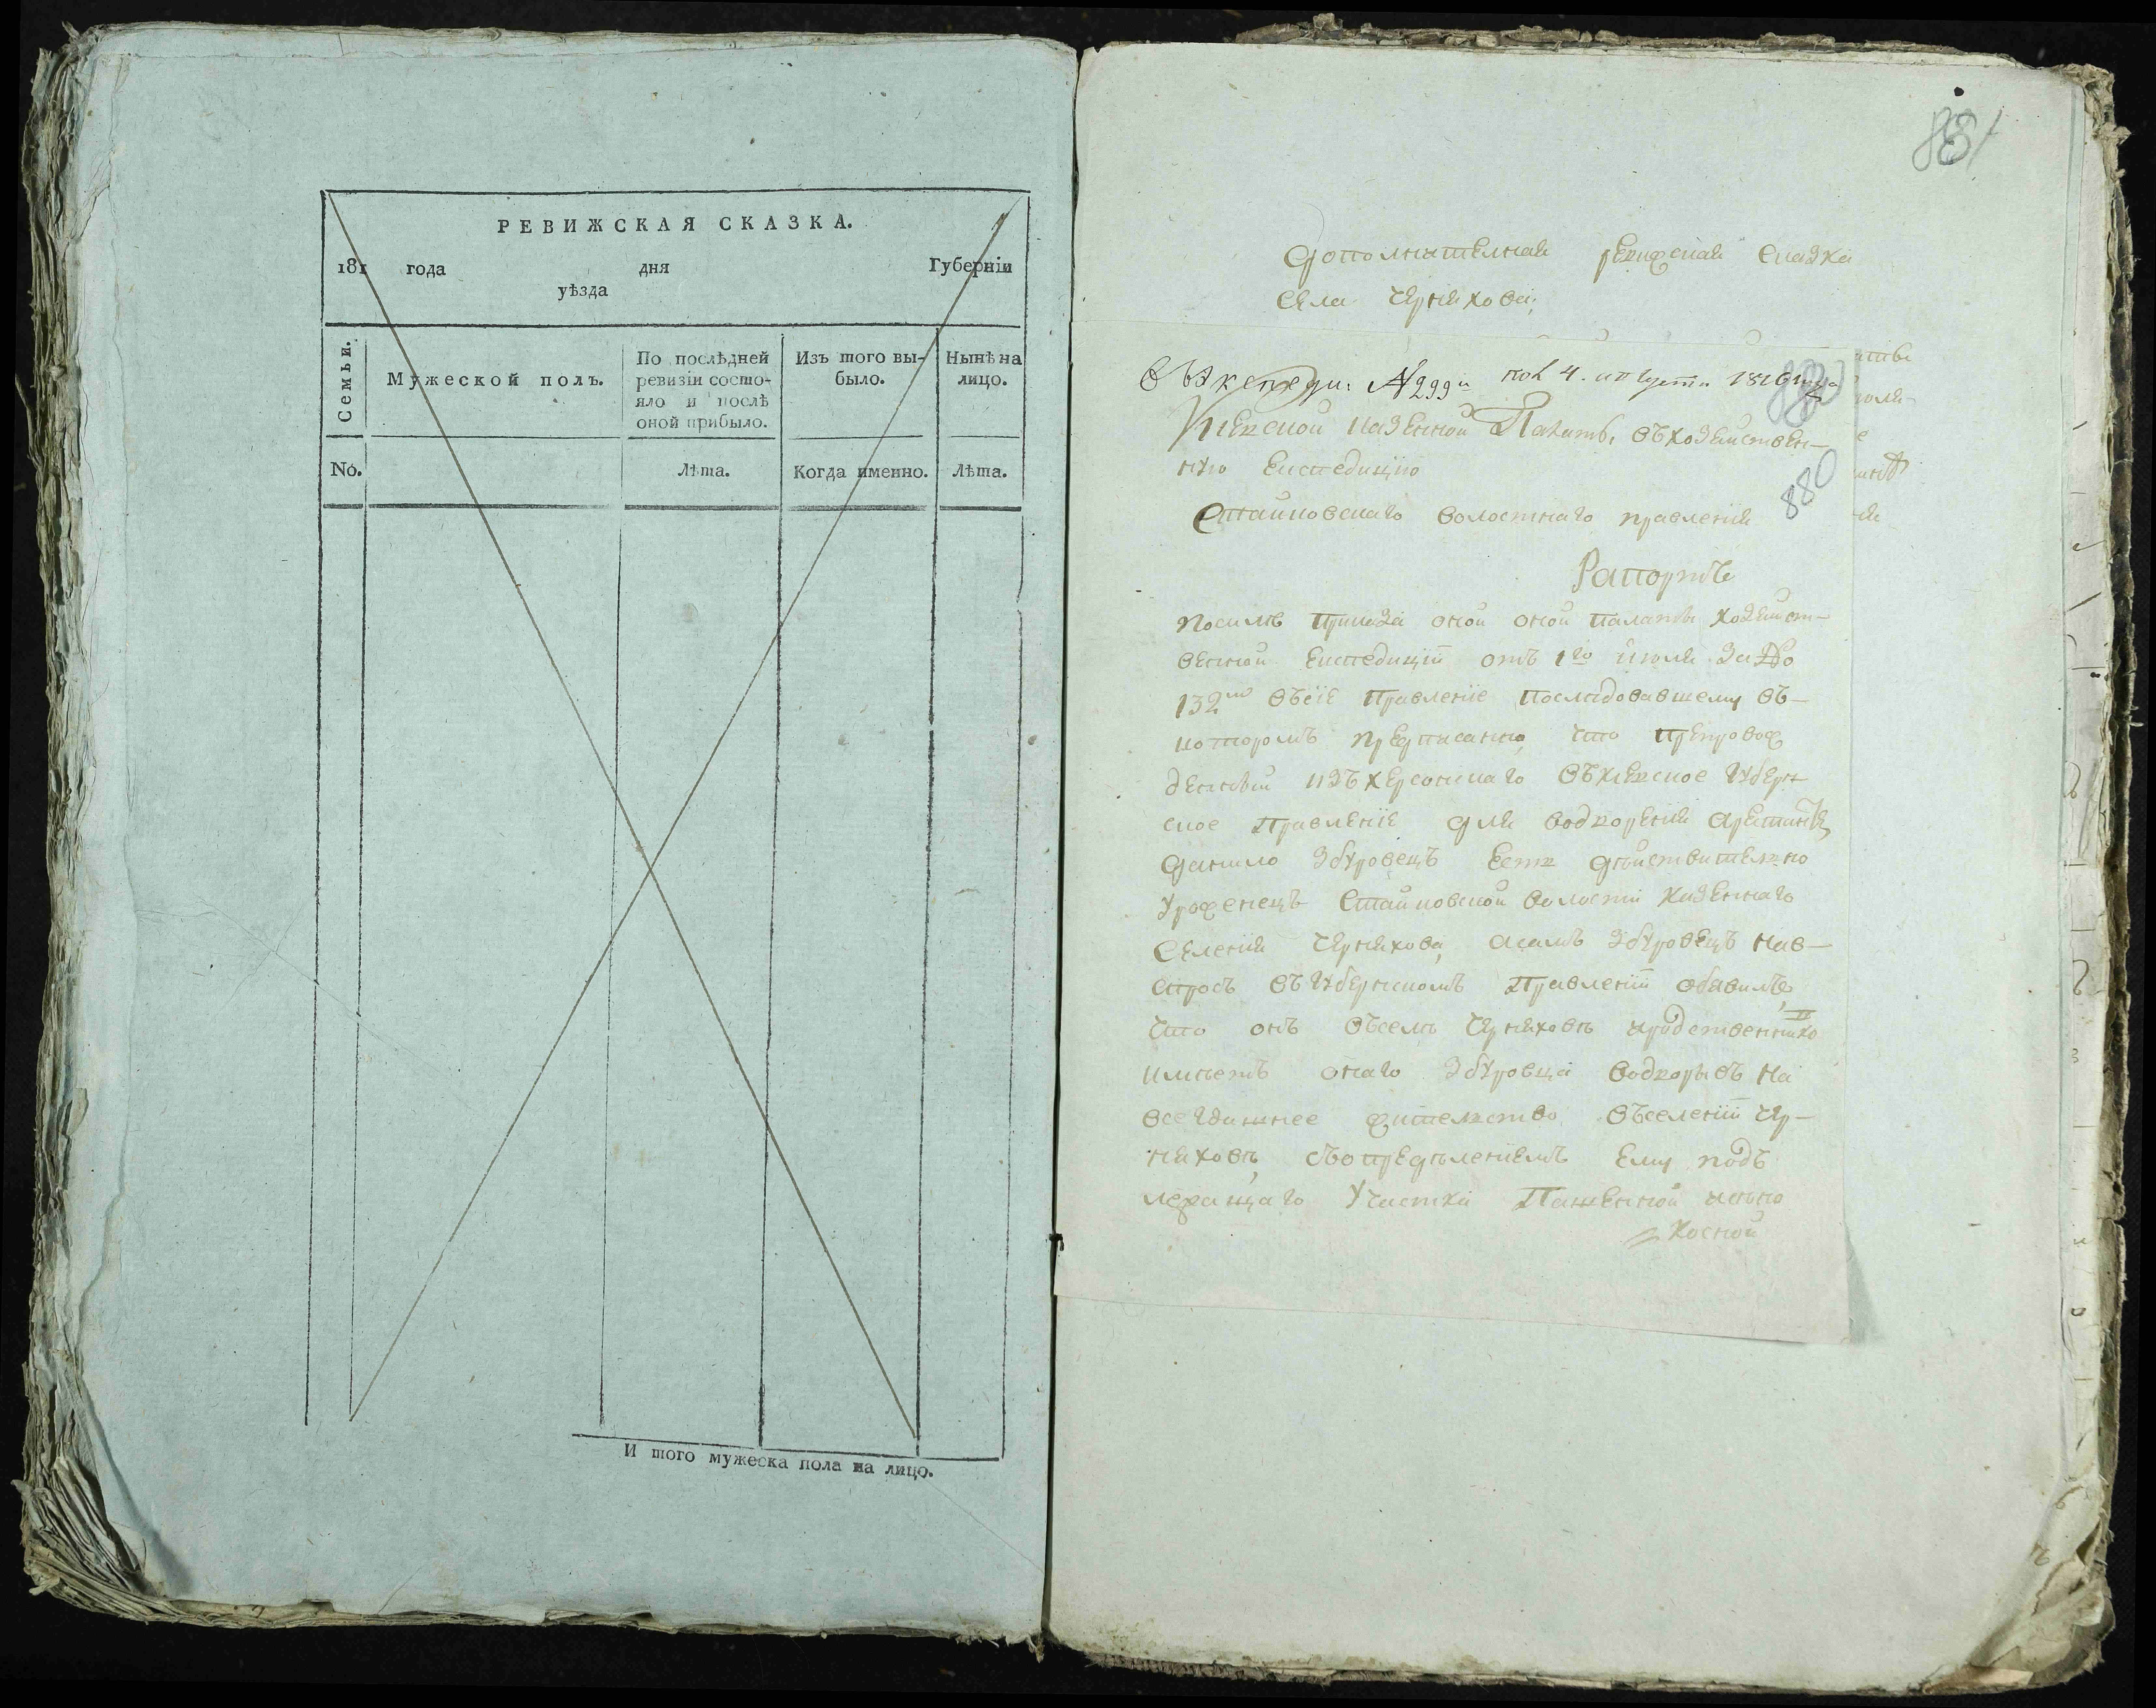 РЕВИЖСКАЯ СКАЗКА.
181 года дня Губерніи
уѣзда
Семьи.
Мужеской полъ.
По послѣдней
ревизіи состо-
яло и послѣ
оной прибыло.
Изъ того вы-
было.
Нынѣ на
лицо.
No.
Лѣта.
Когда именно.
Лѣта.
И того мужеска пола на лицо.
881
Дополнителная ревижская сказка
села Черняхова,
880
Киевской казенной Палаты въ хозяйствен-
ную Експедицію
880
Стайковскаго волостнаго правленія
Рапортъ
Посилѣ Приказа оной оной палаты хозяйст-
венной Експедиціи отъ 1го июля за No
132мъ въсіе Правленіе Последовавшему въ-
которомъ предписанно, что препровож
денный изъ херсонскаго въкиевское губерн
ское Правленіе для водворенія арестантъ
Данило Збуровецъ Есть действительно
уроженецъ Стайковской волости казеннаго
селенія Черняхова, асамъ Збуровецъ нав-
спросъ въгубернскомъ Правленіи обявилъ,
что онъ въселе Черняхове иродственнико
имѣетъ онаго Збуровца водворивъ на
всегдашнее жителство въселеніи Чер-
няховѣ, съопределеніемъ Ему подъ
лежащаго Участка Пашенной исено
косной